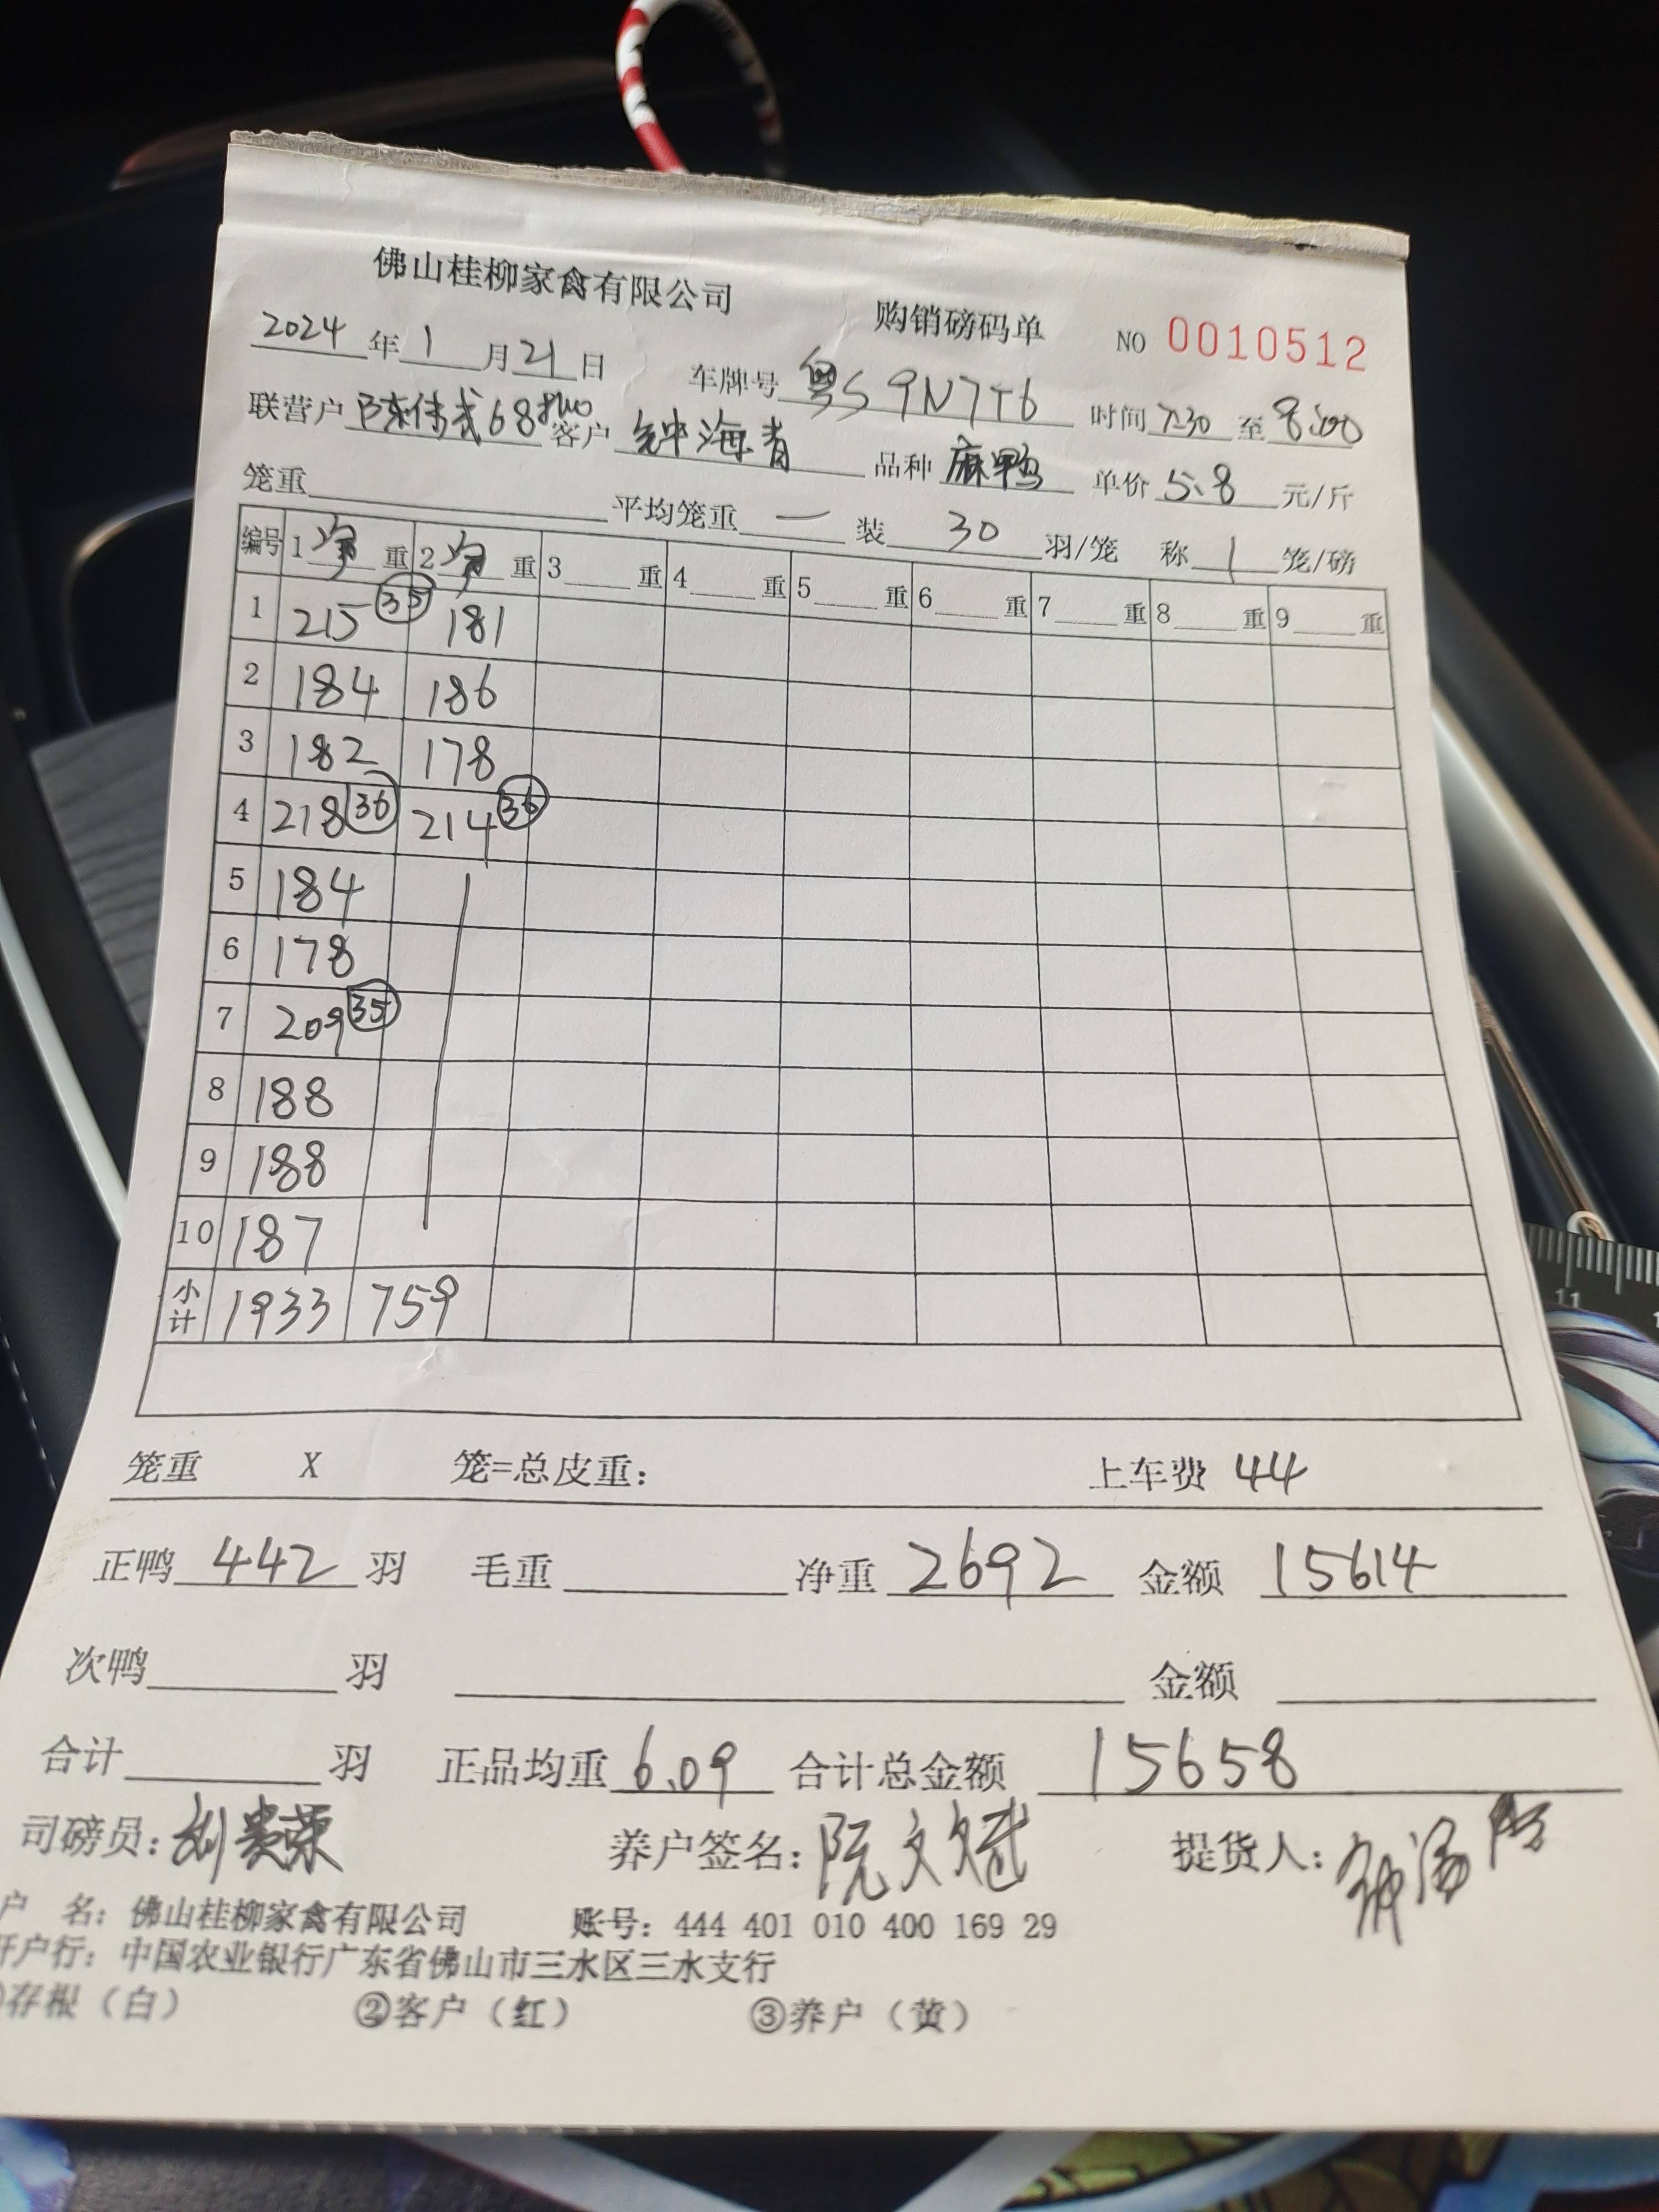 佛山桂柳家禽有限公司 购销磅码单 NO 0010512
2024年1月21日 车牌号 粤S 9N7T6 时间 7:30 至 8:00
联营户 陈伟武68 客户 钟海青 品种 麻鸭 单价 5.8 元/斤
笼重 平均笼重 一 装 30 羽/笼 称 1 笼/磅
编号 1 净 重 2 净 重 3 重 4 重 5 重 6 重 7 重 8 重 9 重
1 215 35 181
2 184 186
3 182 178
4 218 36 214 36
5 184
6 178
7 209 35
8 188
9 188
10 187
小计 1933 759
笼重 X 笼=总皮重: 上车费 44
正鸭 442 羽 毛重 净重 2692 金额 15614
次鸭 羽 金额
合计 羽 正品均重 6.09 合计总金额 15658
司磅员: 刘贵荣 养户签名: 阮文斌 提货人:
户 名: 佛山桂柳家禽有限公司 账号: 444 401 010 400 169 29
开户行: 中国农业银行广东省佛山市三水区三水支行
存根（白） ②客户（红） ③养户（黄）
11